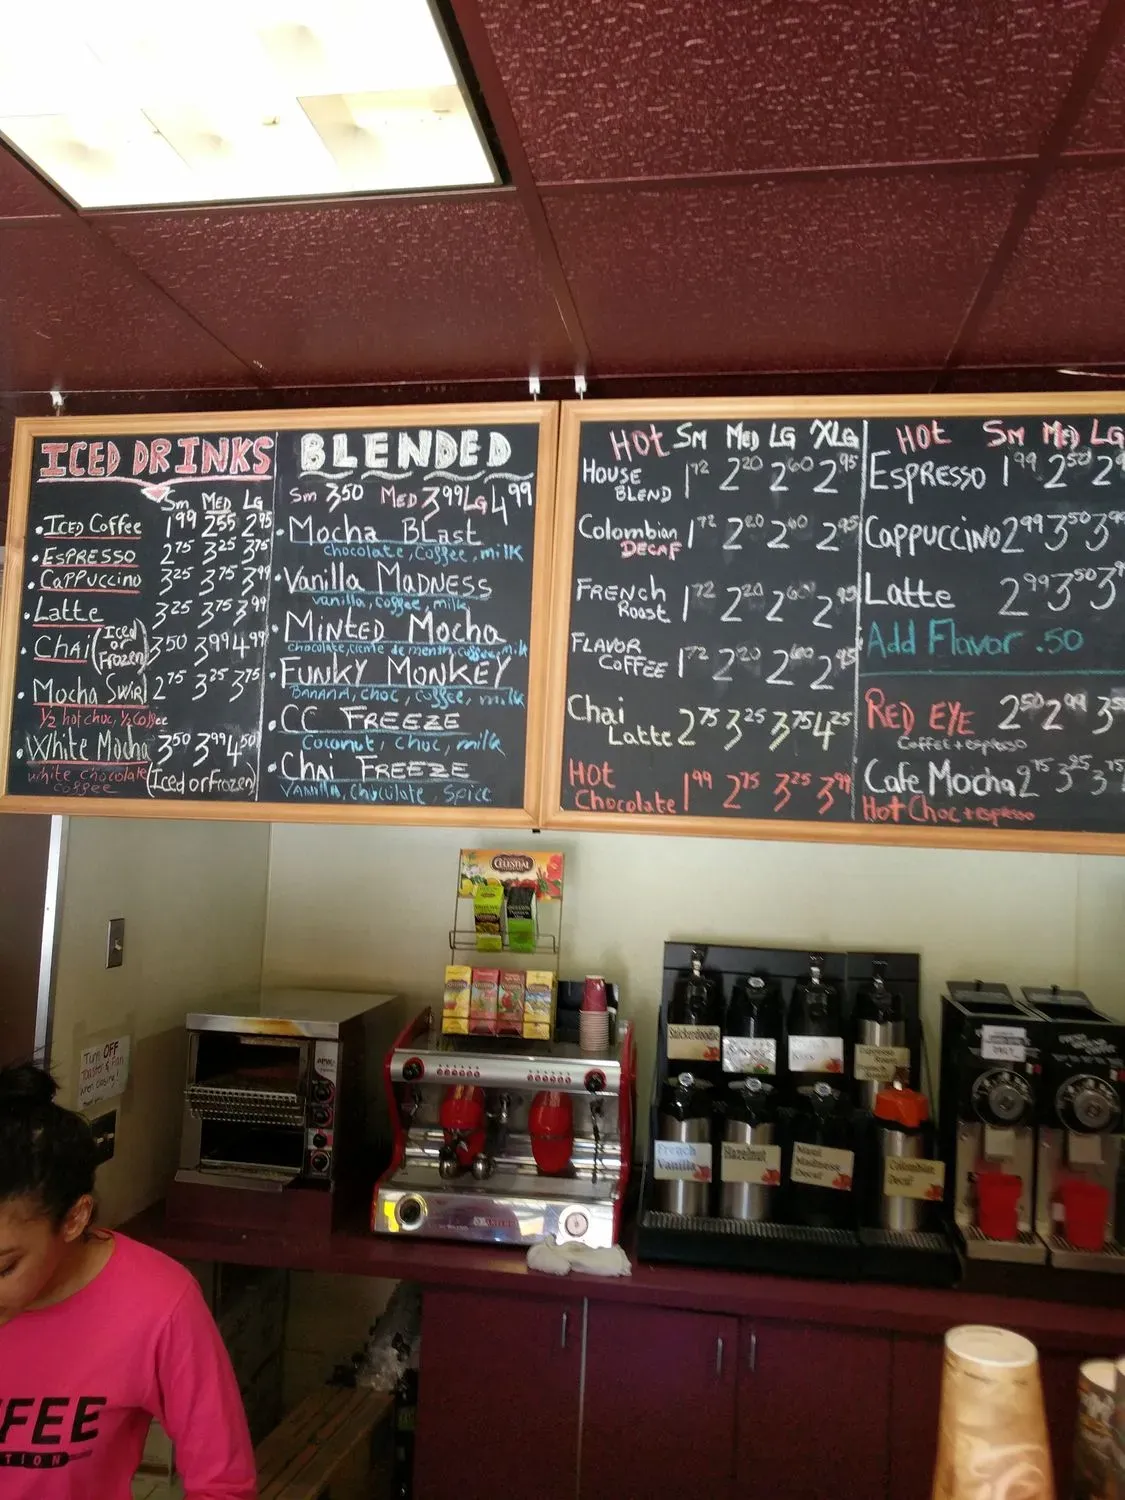 ICED DRINKS
Sm MED LG
• ICED Coffee 1 99 2 55 2 95
• ESPRESSO 2 75 3 25 3 75
• CAPPUCCINO 3 25 3 75 3 99
• LATTE 3 25 3 75 3 99
• CHAI (Iced or Frozen) 3 50 3 99 4 99
• MOCHA SWIRL 2 75 3 25 3 75
1/2 hot choc, 1/2 Coffee
• White Mocha 3 50 3 99 4 50
white chocolate coffee (Iced or Frozen)
BLENDED
Sm 3 50 MED 3 99 LG 4 99
• Mocha BLast
chocolate, coffee, milk
• Vanilla MADNESS
vanilla, coffee, milk
• MINTED Mocha
chocolate, creme de menth, coffee, milk
• FUNKY MONKEY
BANANA, choc, coffee, milk
• CC FREEZE
Coconut, choc, milk
• Chai FREEZE
VANILLA, chocolate, spice
HOT SM MED LG XLG
HOUSE BLEND 1 72 2 20 2 60 2 95
Colombian DECAF 1 72 2 20 2 60 2 95
FRENCH Roast 1 72 2 20 2 60 2 95
FLAVOR COFFEE 1 72 2 20 2 60 2 95
Chai Latte 2 75 3 25 3 75 4 25
HOT Chocolate 1 99 2 75 3 25 3 99
HOT SM MED LG
ESPRESSO 1 99 2 50
CAPPUCCINO 2 99 3 50
LATTE 2 99 3 50
Add Flavor .50
RED EYE 2 50 2 99
Coffee + espresso
Cafe Mocha 2 75 3 25
Hot Choc + espresso
CELESTIAL
Turn OFF
Toaster & Fan
when closing!
Snickerdoodle
French Vanilla
Hazelnut
Maui Madness Decaf
Colombian Decaf
FFEE
TION